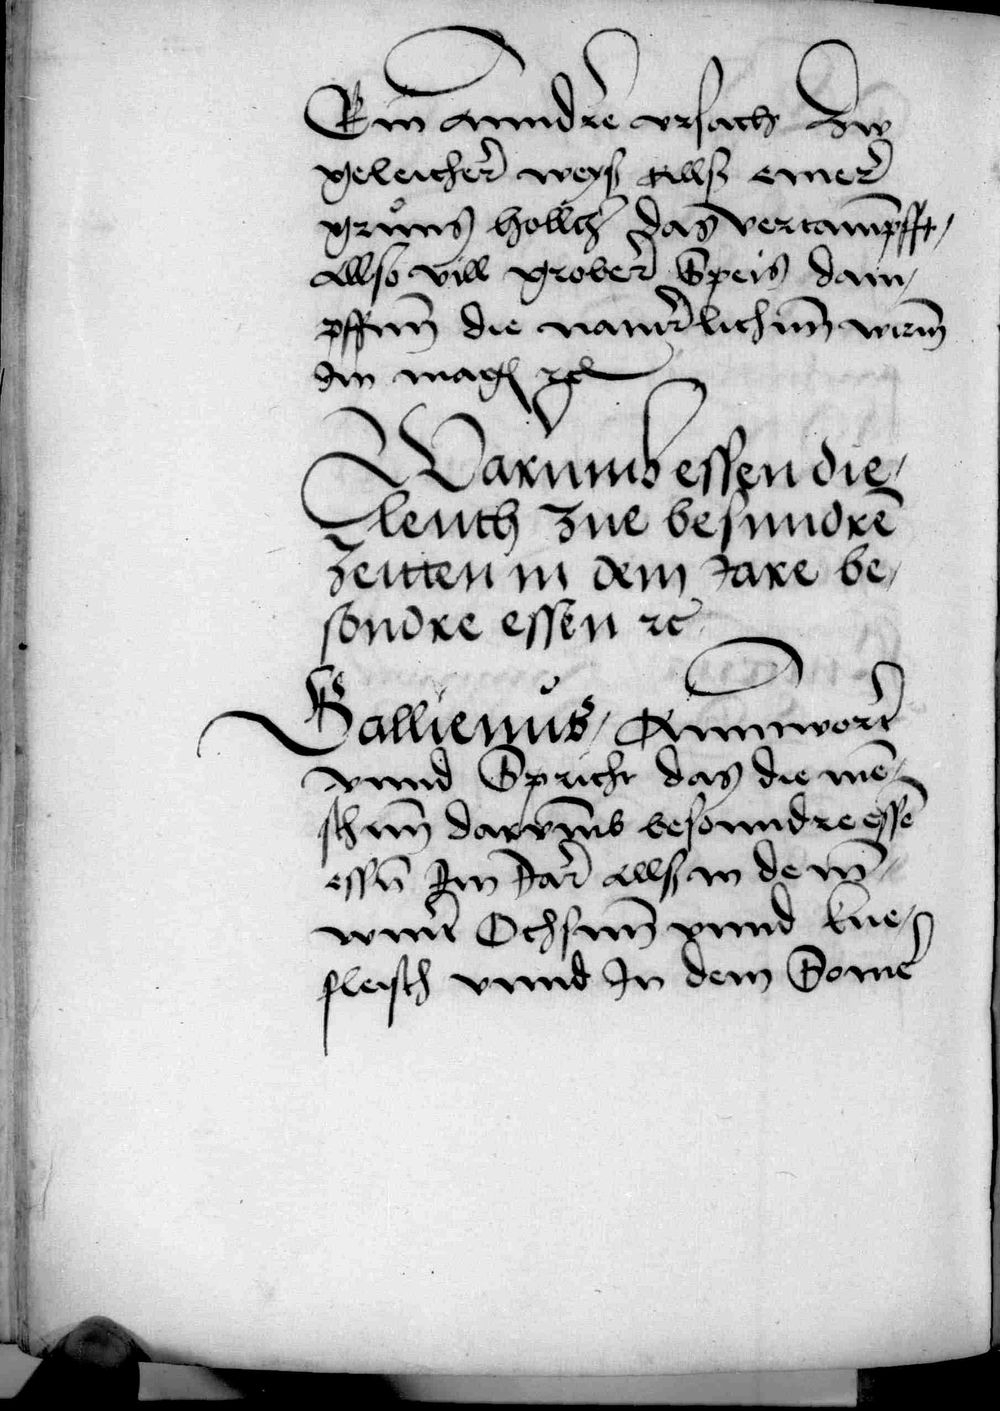 Ein annndre vrsach Zw
geleicher weys allß einer
gruens hollcz das vertampfft /
allso vill grober Speis dam /
pffenn die naturlichenn wirm
Im mag rc
Warumb essen die /
leuth zue besundren
zeitten in dem Jare be /
sondre essen rc
Gallienus / Anntwort
vnnd Spricht das die men /
schenn darvmb besonndre essen
essen Im Jar allß in dem
winnter Ochsenn vnnd kue /
fleisch vnnd In dem Somer